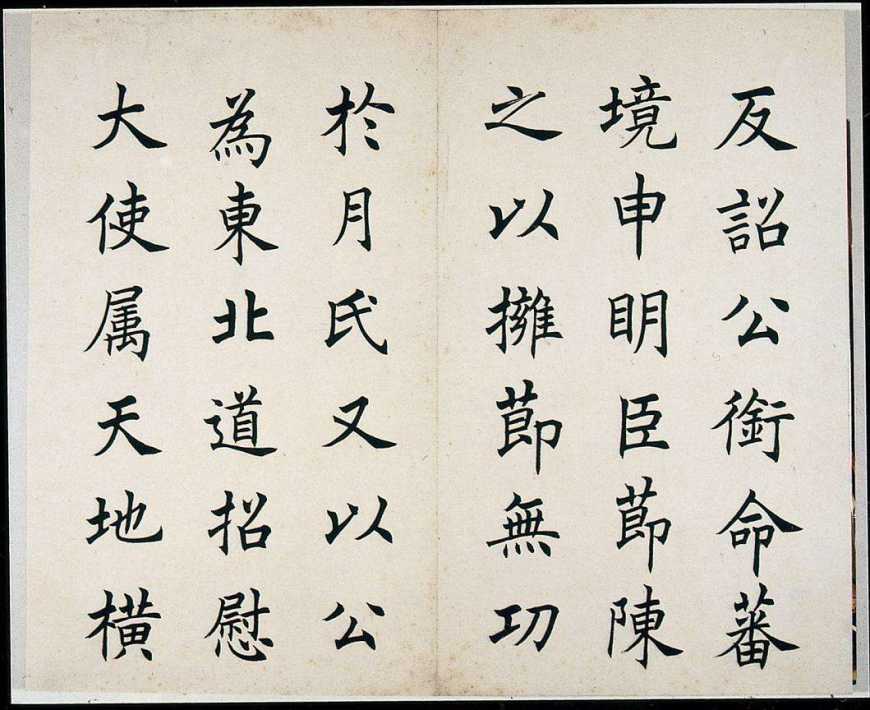 反詔公銜命蕃
境申眀臣莭陳
之以擁莭無功
於月氏又以公
為東北道招慰
大使属天地横